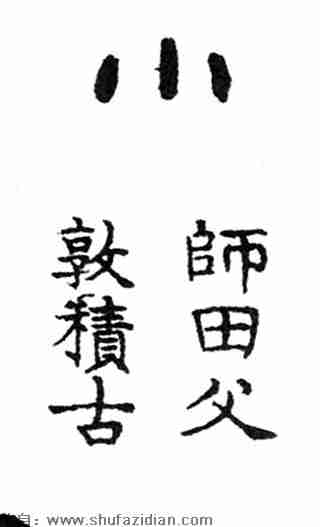 小
師田父
敦積古
自：www.shufazidian.com